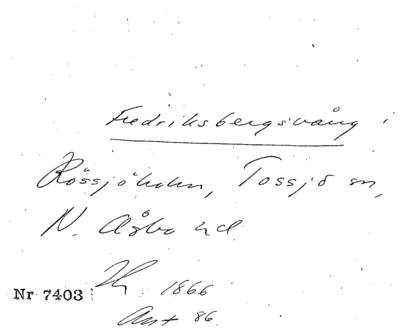 Fredriksbergsvång i
Rössjöholm, Tossjö sn,
N. Åsbo hd.
1866
Nr 7403
Ant 86